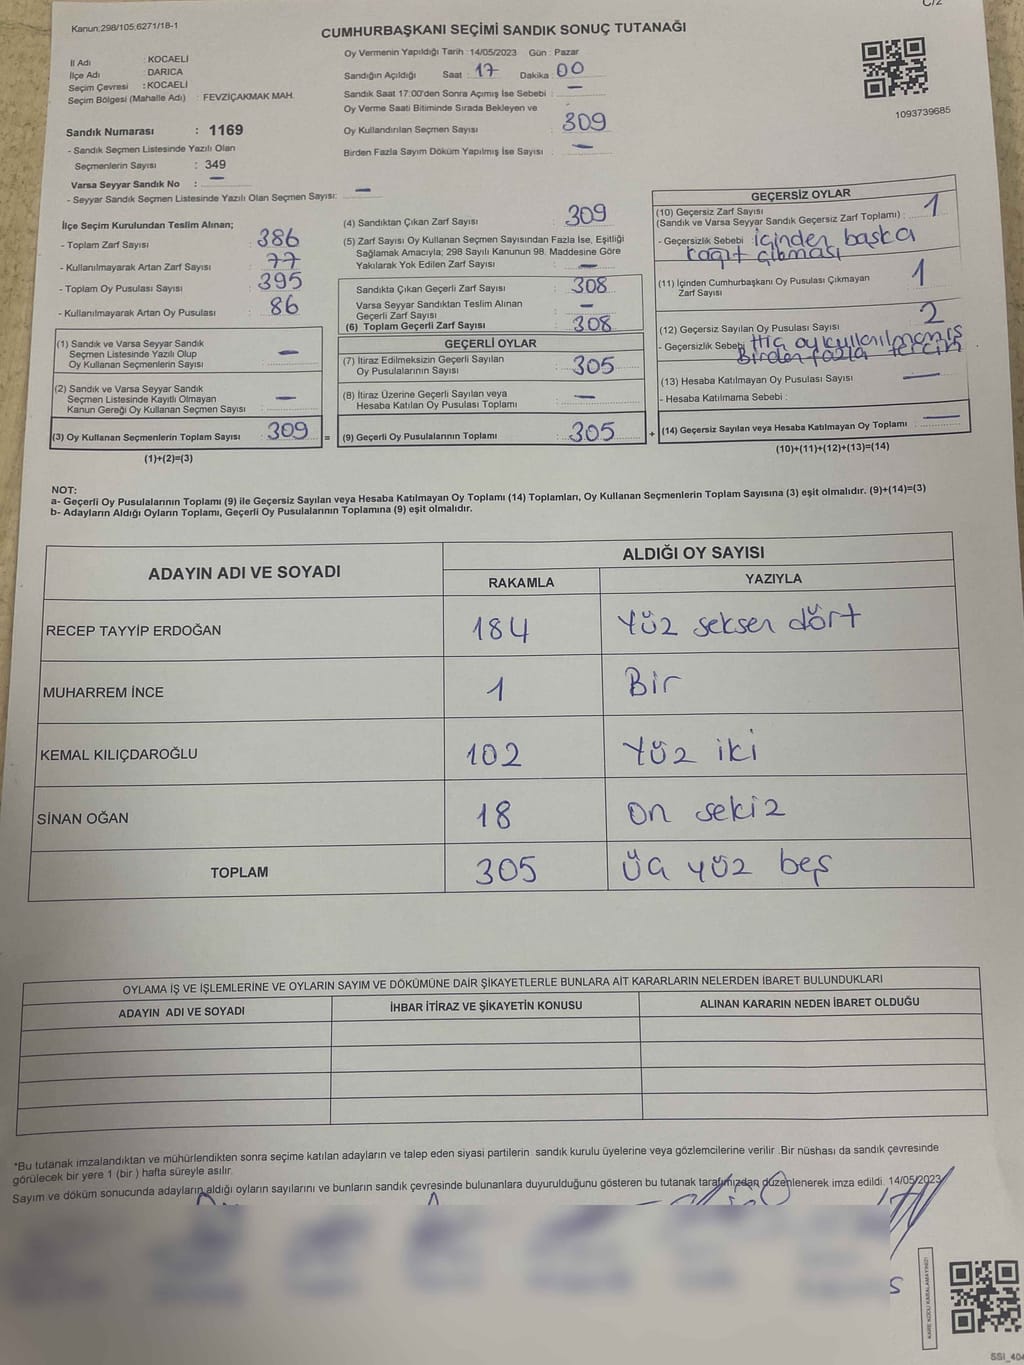 C/2
Kanun:298/105;6271/18-1
CUMHURBAŞKANI SEÇİMİ SANDIK SONUÇ TUTANAĞI
İl Adı : KOCAELİ
İlçe Adı : DARICA
Seçim Çevresi : KOCAELİ
Seçim Bölgesi (Mahalle Adı) : FEVZİÇAKMAK MAH.
Sandık Numarası : 1169
- Sandık Seçmen Listesinde Yazılı Olan
Seçmenlerin Sayısı : 349
Varsa Seyyar Sandık No : —
- Seyyar Sandık Seçmen Listesinde Yazılı Olan Seçmen Sayısı: —
Oy Vermenin Yapıldığı Tarih :14/05/2023 Gün : Pazar
Sandığın Açıldığı Saat : 17 Dakika : 00
Sandık Saat 17:00'den Sonra Açımış İse Sebebi : —
Oy Verme Saati Bitiminde Sırada Bekleyen ve
Oy Kullandırılan Seçmen Sayısı : 309
Birden Fazla Sayım Döküm Yapılmış İse Sayısı : —
1093739685
İlçe Seçim Kurulundan Teslim Alınan;
- Toplam Zarf Sayısı : 386
- Kullanılmayarak Artan Zarf Sayısı : 77
- Toplam Oy Pusulası Sayısı : 395
- Kullanılmayarak Artan Oy Pusulası : 86
(1) Sandık ve Varsa Seyyar Sandık
Seçmen Listesinde Yazılı Olup
Oy Kullanan Seçmenlerin Sayısı : —
(2) Sandık ve Varsa Seyyar Sandık
Seçmen Listesinde Kayıtlı Olmayan
Kanun Gereği Oy Kullanan Seçmen Sayısı : —
(3) Oy Kullanan Seçmenlerin Toplam Sayısı : 309 =
(1)+(2)=(3)
(4) Sandıktan Çıkan Zarf Sayısı : 309
(5) Zarf Sayısı Oy Kullanan Seçmen Sayısından Fazla İse, Eşitliği
Sağlamak Amacıyla; 298 Sayılı Kanunun 98. Maddesine Göre
Yakılarak Yok Edilen Zarf Sayısı : —
Sandıkta Çıkan Geçerli Zarf Sayısı : 308
Varsa Seyyar Sandıktan Teslim Alınan
Geçerli Zarf Sayısı : —
(6) Toplam Geçerli Zarf Sayısı : 308
GEÇERLİ OYLAR
(7) İtiraz Edilmeksizin Geçerli Sayılan
Oy Pusulasının Sayısı : 305
(8) İtiraz Üzerine Geçerli Sayılan veya
Hesaba Katılan Oy Pusulası Toplamı : —
(9) Geçerli Oy Pusulalarının Toplamı : 305 +
GEÇERSİZ OYLAR
(10) Geçersiz Zarf Sayısı
(Sandık ve Varsa Seyyar Sandık Geçersiz Zarf Toplamı) : 1
- Geçersizlik Sebebi : içinden başka
kağıt çıkması
(11) İçinden Cumhurbaşkanı Oy Pusulası Çıkmayan
Zarf Sayısı : 1
(12) Geçersiz Sayılan Oy Pusulası Sayısı : 2
- Geçersizlik Sebebi Hiç oy kullanılmamış
Birden fazla tercih
(13) Hesaba Katılmayan Oy Pusulası Sayısı : —
- Hesaba Katılmama Sebebi :
(14) Geçersiz Sayılan veya Hesaba Katılmayan Oy Toplamı : —
(10)+(11)+(12)+(13)=(14)
NOT:
a- Geçerli Oy Pusulalarının Toplamı (9) ile Geçersiz Sayılan veya Hesaba Katılmayan Oy Toplamı (14) Toplamları, Oy Kullanan Seçmenlerin Toplam Sayısına (3) eşit olmalıdır. (9)+(14)=(3)
b- Adayların Aldığı Oyların Toplamı, Geçerli Oy Pusulalarının Toplamına (9) eşit olmalıdır.
ADAYIN ADI VE SOYADI ALDIĞI OY SAYISI
RAKAMLA YAZIYLA
RECEP TAYYİP ERDOĞAN 184 Yüz seksen dört
MUHARREM İNCE 1 Bir
KEMAL KILIÇDAROĞLU 102 Yüz iki
SİNAN OĞAN 18 on sekiz
TOPLAM 305 Üç yüz beş
OYLAMA İŞ VE İŞLEMLERİNE VE OYLARIN SAYIM VE DÖKÜMÜNE DAİR ŞİKAYETLERLE BUNLARA AİT KARARLARIN NELERDEN İBARET BULUNDUKLARI
ADAYIN ADI VE SOYADI İHBAR İTİRAZ VE ŞİKAYETİN KONUSU ALINAN KARARIN NEDEN İBARET OLDUĞU
*Bu tutanak imzalandıktan ve mühürlendikten sonra seçime katılan adayların ve talep eden siyasi partilerin sandık kurulu üyelerine veya gözlemcilerine verilir .Bir nüshası da sandık çevresinde
görülecek bir yere 1 (bir ) hafta süreyle asılır.
Sayım ve döküm sonucunda adayların aldığı oyların sayılarını ve bunların sandık çevresinde bulunanlara duyurulduğunu gösteren bu tutanak tarafımızdan düzenlenerek imza edildi. 14/05/2023
KARE KODU KARALAMAYINIZ!
SSI_404